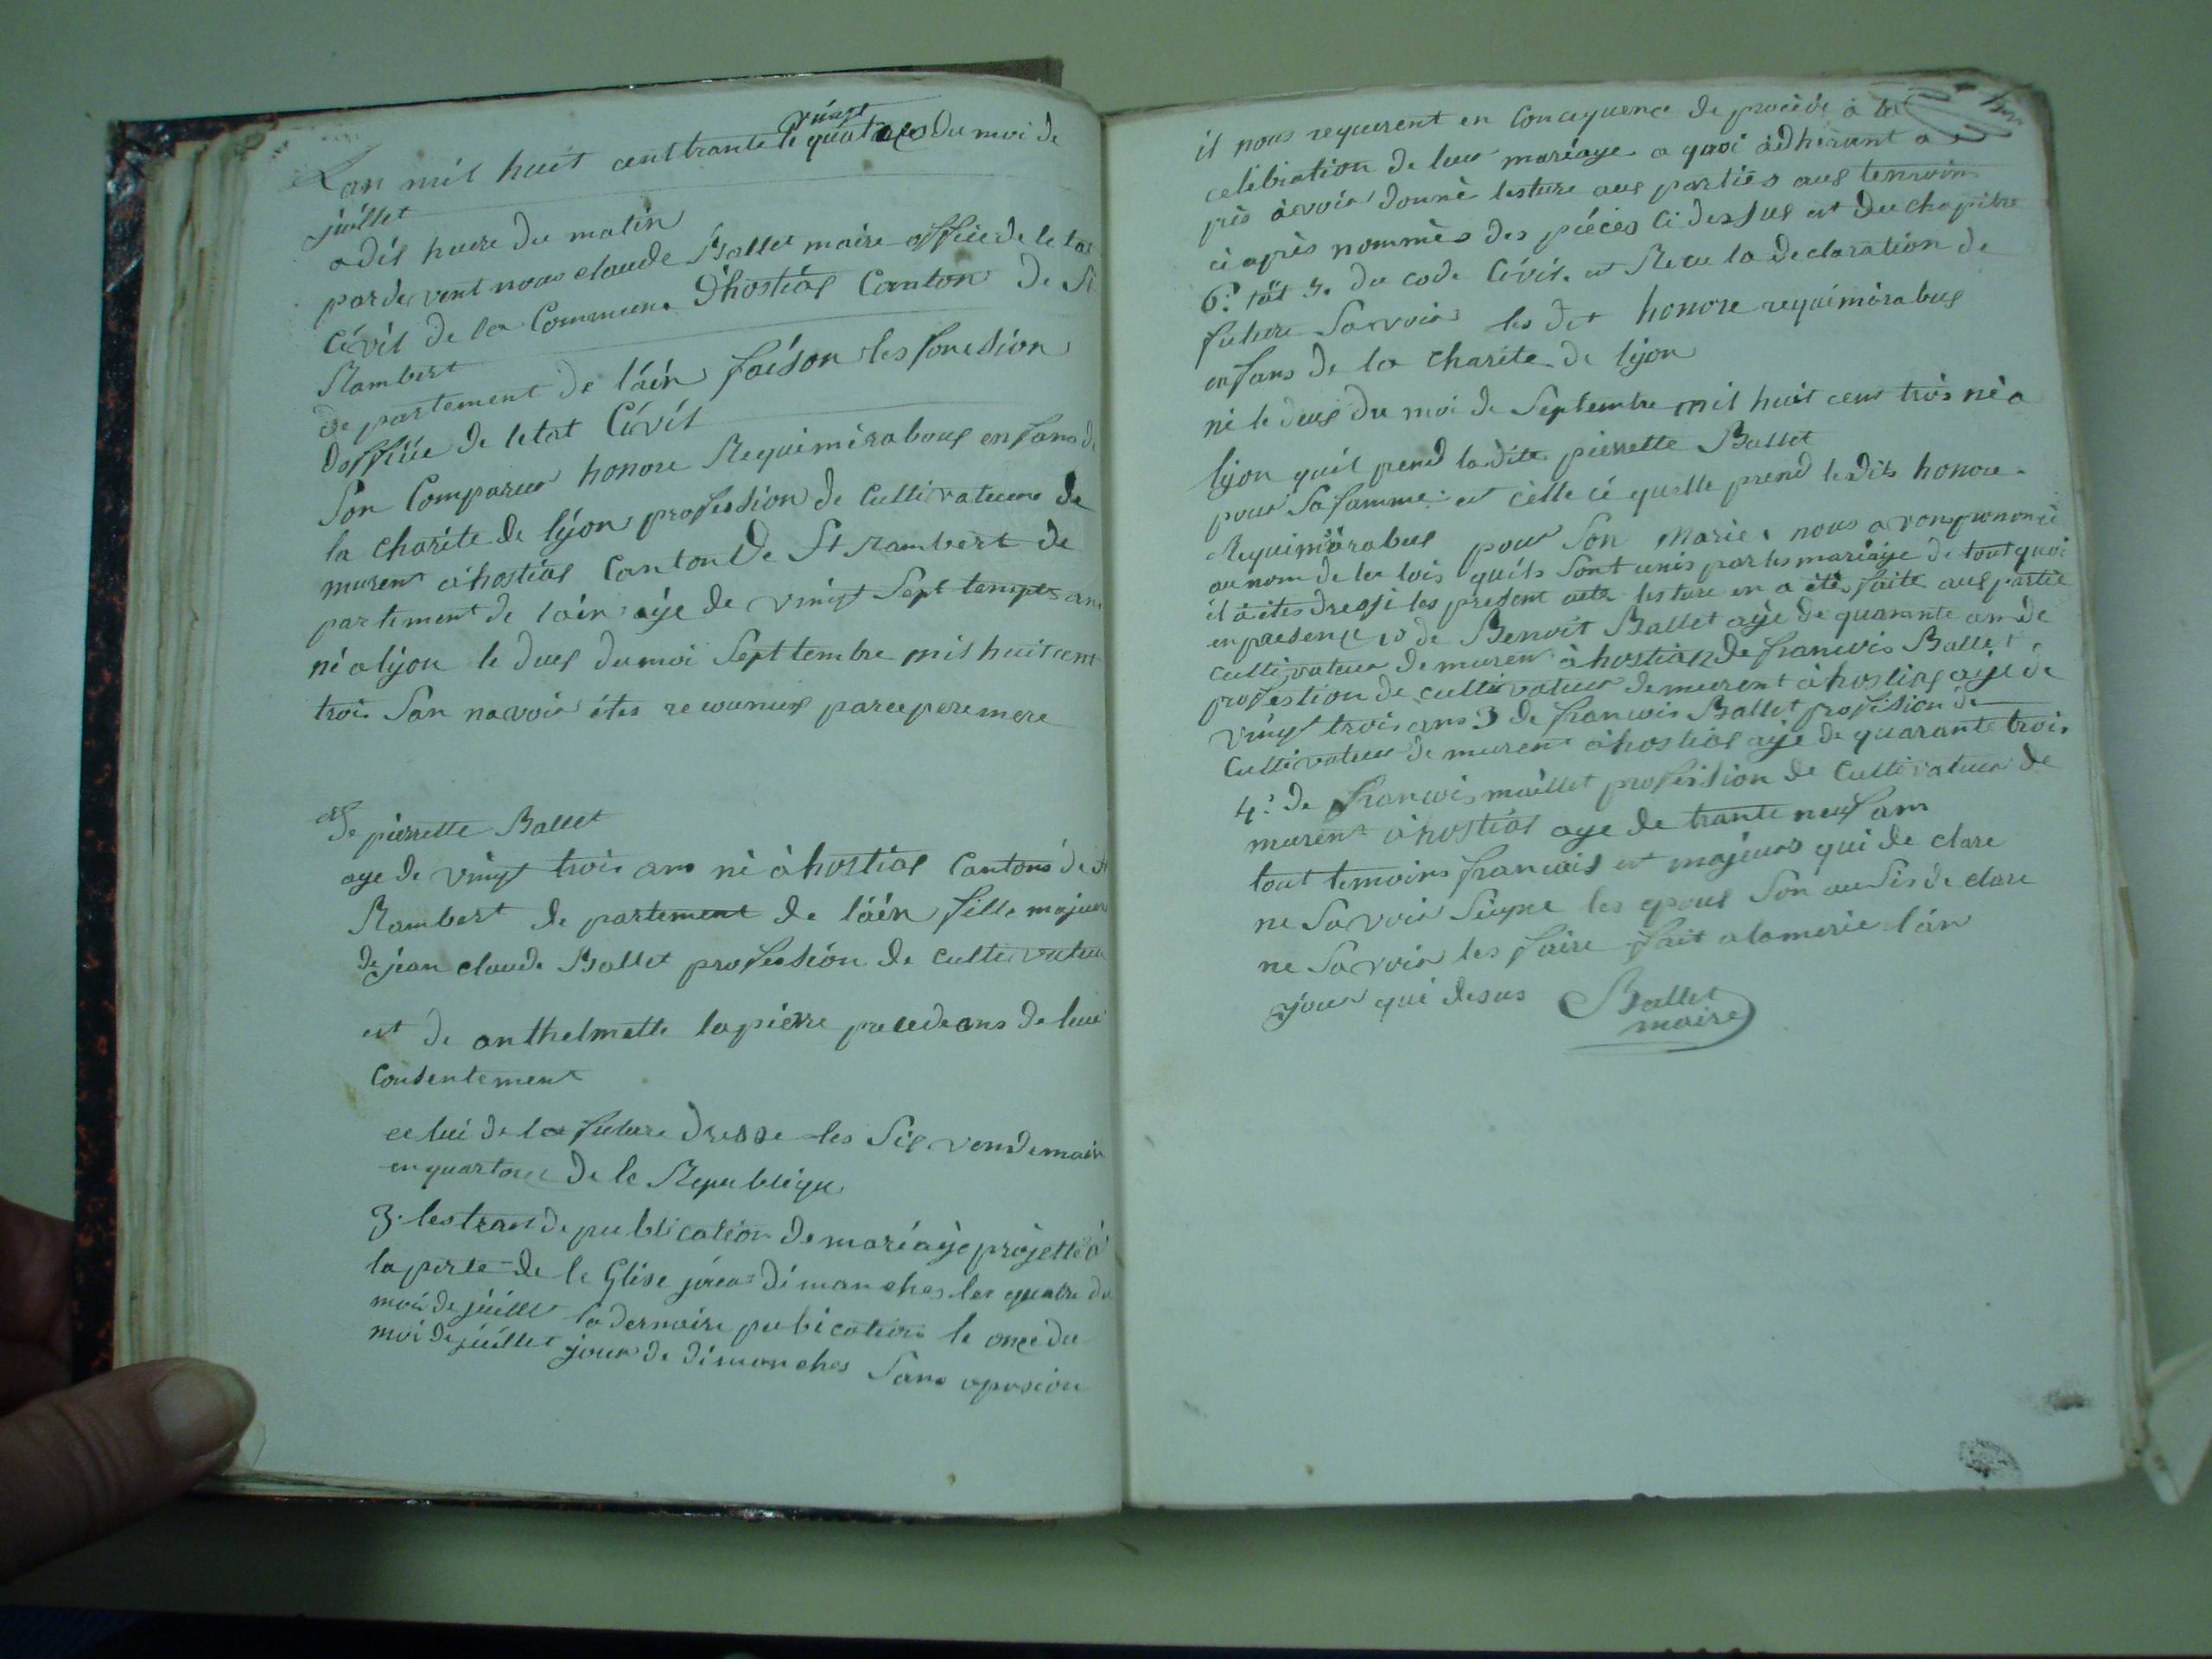 Lan mil huit cent trante le vingt quatres du moi de
juillet
a dis huere du matin
par de vent nous claude Ballet maire officie de le tat
Civil de la Commune d'hostias Canton de St
Rambert
de partement de l'ain faison les fonction
dofficie de letat Civil
Son Comparus honore Requimirabous enfans de
la charite de lÿon profession de Cultivateure de
murent à hostias Canton de St rambert de
partement de l'ain age de vingt Sept temps an
né a lÿon le dues du moi Sept tembre mil huit cent
trois San navoir étes reconnus par ce pere mere
et de pierrette Ballet
age de vingt trois ans né à hostias Cantons de St
Rambert de partement de l'áin fille majeure
de jean claude Ballet profession de cultivateur
et de anthelmette lapierre procedans de leur
Consentement
ce lui de la future dresse les Sis vendemair
en quartorse de le Republique
3. les tras de publication de mariage projetté à
la porte de le Glise jour dimanches les quatre du
moi de juillet la dernaire publication le once du
moi de juillet jour de dimanches Sans oposion
il nous requerent en Concequence de procède à la
celebration de leur mariage a quoi adherant a
près avoir donné lesture aus parties aus temoins
ci après nommès des piéces ci dessus et du chapitre
6. tit 5. du code Civil. et Recu la declaration de
future Savoir les dit honore requimirabus
enfans de la charite de lÿon
né le deus du moi de Septembre mil huit cent trois né a
lÿon quil prend la dite pierrette Ballet
pour Sa famme et celle ci quelle prend le dits honore
Requimirabus pour Son Marie, nous avons prononcé
au nom de la lois quils Sont unis par les mariage de tout quoi
il à étes dressé les present acte lesture en a étés faite aus partie
en presence 10 de Benoit Ballet age de quarante an de
cultivateur demurent à hostias 2 de francois Ballet
profestion de cultivateur demurent à hostias age de
vingt trois ans 3 de francois Ballet profision de
Cultivateur de murent à hostias age de quarante trois
4.° de francois maillet profession de Cultivateur de
murent à hostias age de trante neuf ans
tout temoins francais et majeurs qui de clare
ne Savoir Signe les epous Son ausis de clare
ne Savoir les faire fait a lamerie lan
jour qui desus Ballet
maire